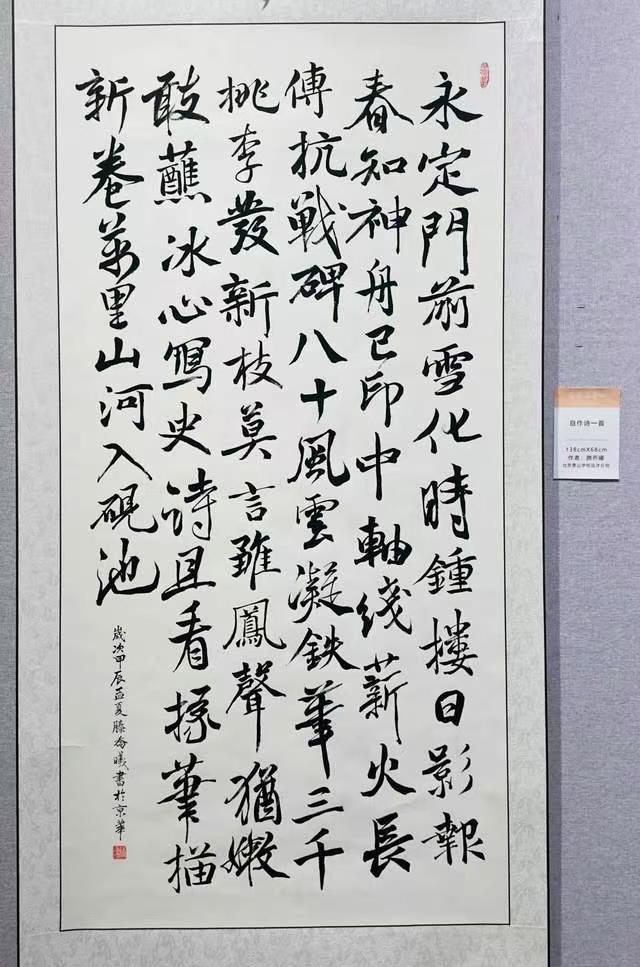 永定門前雪化時鍾樓日影報
春知神舟已印中軸綫薪火長
傳抗戰碑八十風雲凝鉄筆三千
桃李發新枝莫言雛鳳聲猶嫩
敢蘸冰心寫史詩且看椽筆描
新卷萬里山河入硯池
歲次甲辰孟夏滕曦書於京華
自作诗一首
138cmX68cm
作者：
北京景山学校远洋分校